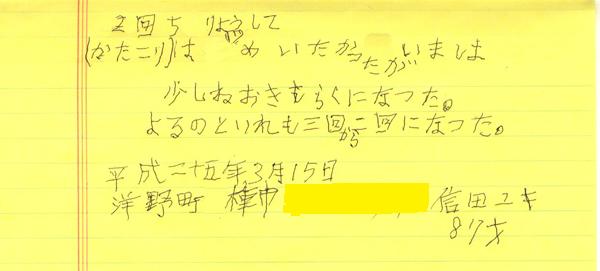 2回ちりょうして
(かたこり)は めいたかったがいましま
少しねおきもらくになった。
よるのといれも三回から二回になった。
平成二十五年3月15日
洋野町 種市 信田ユキ
87才